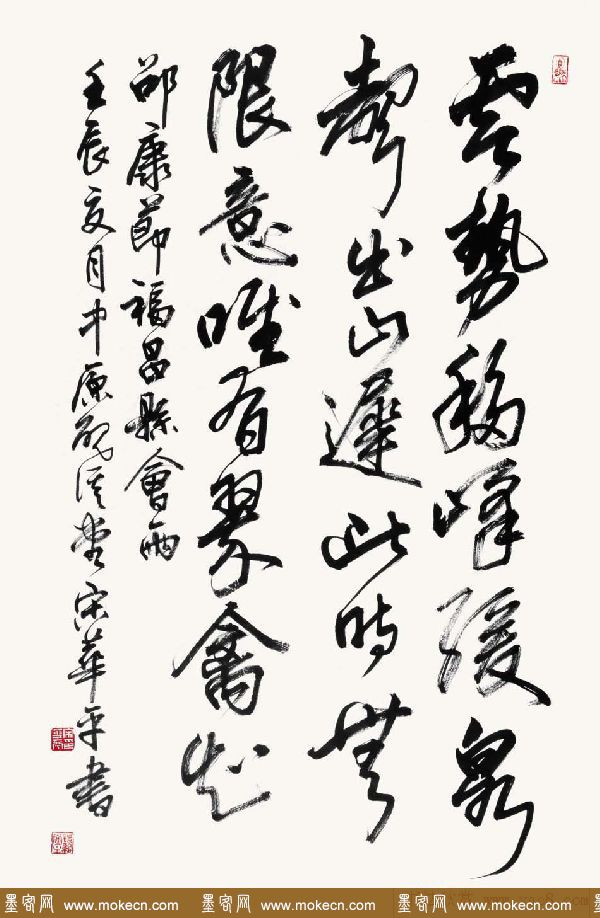 雲勢移峰緩泉
聲出山遲此時無
限意唯有翠禽知
邵康節福昌縣會雨
壬辰交月中原硯溪堂宋華平書
墨客网 www.mokecn.com 墨客网 www.mokecn.com 墨客网 www.mokecn.com